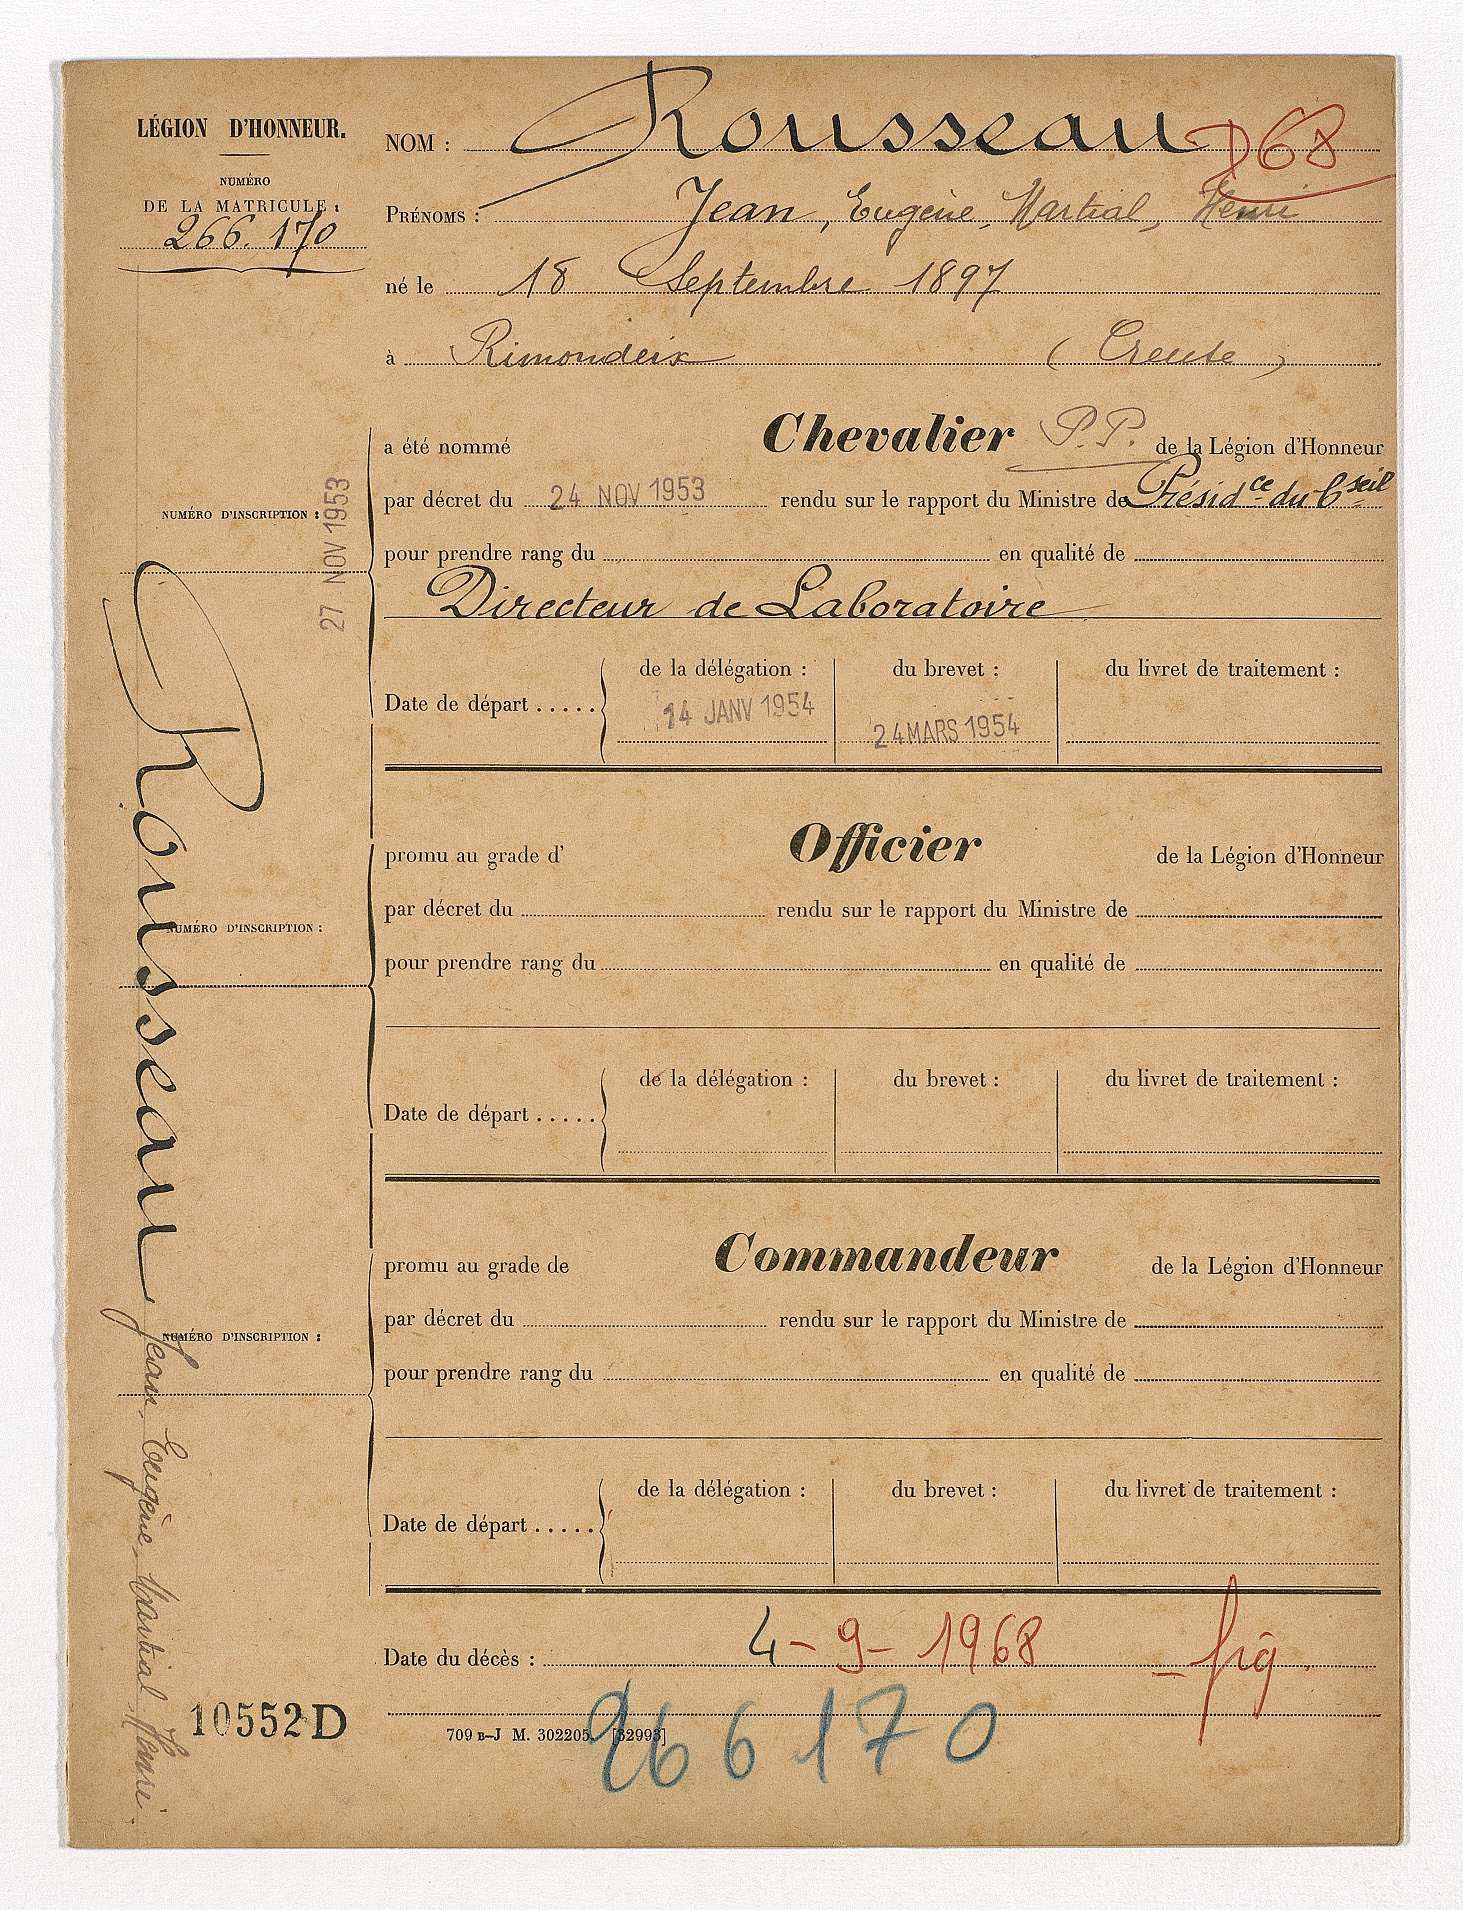 LÉGION D'HONNEUR.
NUMÉRO
DE LA MATRICULE :
266.170
NOM : Rousseau D68
PRÉNOMS : Jean, Eugène, Martial, Henri
né le 18 Septembre 1897
à Rimondeix (Creuse)
NUMÉRO D'INSCRIPTION :
27 NOV 1953
a été nommé Chevalier P.P. de la Légion d'Honneur
par décret du 24 NOV 1953 rendu sur le rapport du Ministre de Présidce du Cseil
pour prendre rang du en qualité de
Directeur de Laboratoire
de la délégation : du brevet : du livret de traitement :
Date de départ ..... 14 JANV 1954 24 MARS 1954
Rousseau Jean, Eugène, Martial, Henri
promu au grade d' Officier de la Légion d'Honneur
par décret du rendu sur le rapport du Ministre de
NUMÉRO D'INSCRIPTION :
pour prendre rang du en qualité de
de la délégation : du brevet : du livret de traitement :
Date de départ .....
promu au grade de Commandeur de la Légion d'Honneur
par décret du rendu sur le rapport du Ministre de
NUMÉRO D'INSCRIPTION :
pour prendre rang du en qualité de
de la délégation : du brevet : du livret de traitement :
Date de départ .....
Date du décès : 4-9-1968
10552 D
709 B-J M. 302205. [32993]
266170